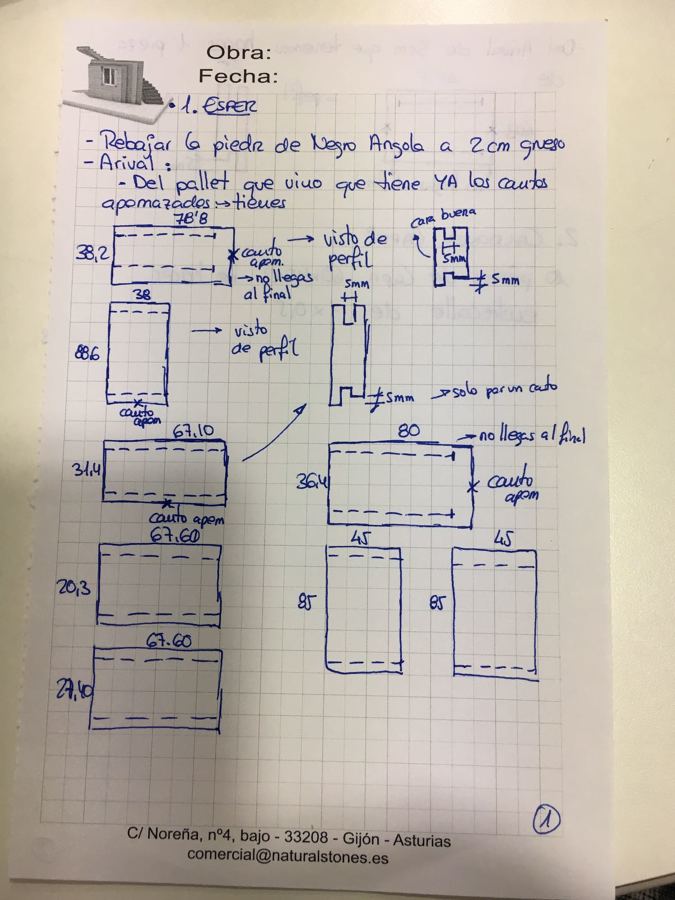 Obra:
Fecha:
· 1. ESPER
- Rebajar la piedra de Negro Angola a 2 cm grueso
- Arival:
- Del pallet que vino que tiene YA los cantos
apomazados → tienes
78'8
38,2
canto
apom.
→ no llegas
al final
→ visto de
perfil
cara buena
5mm
5mm
38
88,6
canto
apom
→ visto
de perfil
5mm
5mm
→ solo por un canto
67,10
31,4
canto apom
80
→ no llegas al final
36,4
canto
apom
67.60
20,3
45
85
45
85
67.60
27,40
1
C/ Noreña, nº4, bajo - 33208 - Gijón - Asturias
comercial@naturalstones.es